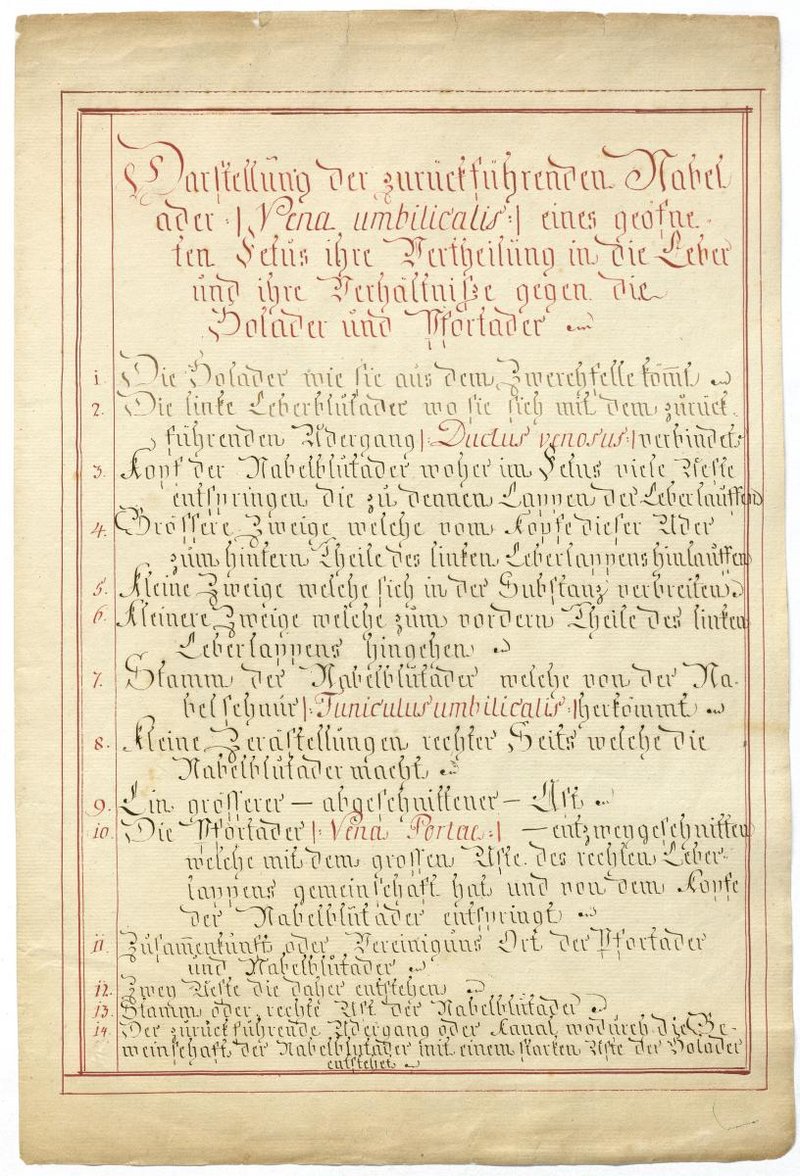 Darstellung der zurückführenden Nabel
ader :| Vena umbilicalis:| eines geöfne-
ten Fetus ihre Vertheilung in die Leber
und ihre Verhältniße gegen die
Holader und Pfortader
1. Die Holader wie sie aus dem Zwerchfelle kom̄t
2. Die linke Leberblutader wo sie sich mit dem zurück-
führenden Adergang |: Ductus venosus:| verbindet
3. Kopf der Nabelblutader woher im Fetus viele Aeste
entspringen die zu dennen Lappen der Leber lauffen
4. Grössere Zweige welche vom Kopfe dieser Ader
zum hintern Theile des linken Leberlappens hinlauffen
5. Kleine Zweige welche sich in der Substanz verbreiten
6. Kleinere Zweige welche zum vordern Theile des linken
Leberlappens hingehen
7. Stamm der Nabelblutader welche von der Na-
belschnur |: Funiculus umbilicalis :| herkömmt
8. Kleine Zerästellungen rechter Seits welche die
Nabelblutader macht
9. Ein grösserer — abgeschnittener — Ast
10. Die Pfortader |: Vena Portae:| — entzweygeschnitten
welche mit dem grossen Aste des rechten Leber-
lappens gemeinschaft hat und von dem Kopfe
der Nabelblutader entspringt
11. Zusam̄enkunft oder Vereinigungs Ort der Pfortader
und Nabelblutader
12. Zwey Aeste die daher entstehen
13. Stamm oder rechte Ast der Nabelblutader
14. Der zurückführende Adergang oder Kanal, wodurch die Ge-
meinschaft der Nabelblutader mit einem starken Aste der Holader
entstehet